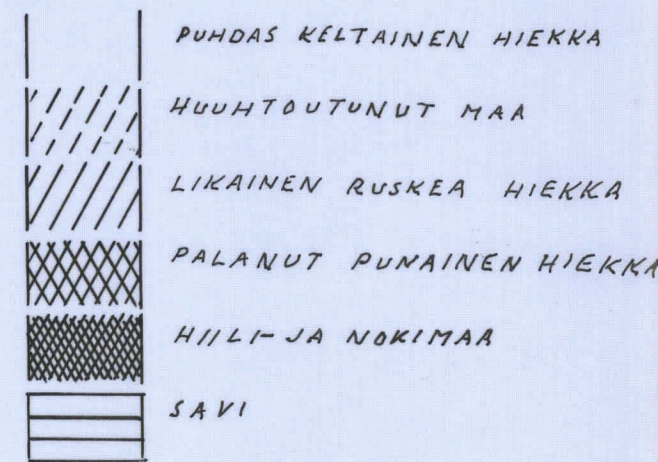 PUHDAS KELTAINEN HIEKKA
HUUHTOUTUNUT MAA
LIKAINEN RUSKEA HIEKKA
PALANUT PUNAINEN HIEKKA
HIILI-JA NOKIMAA
SAVI